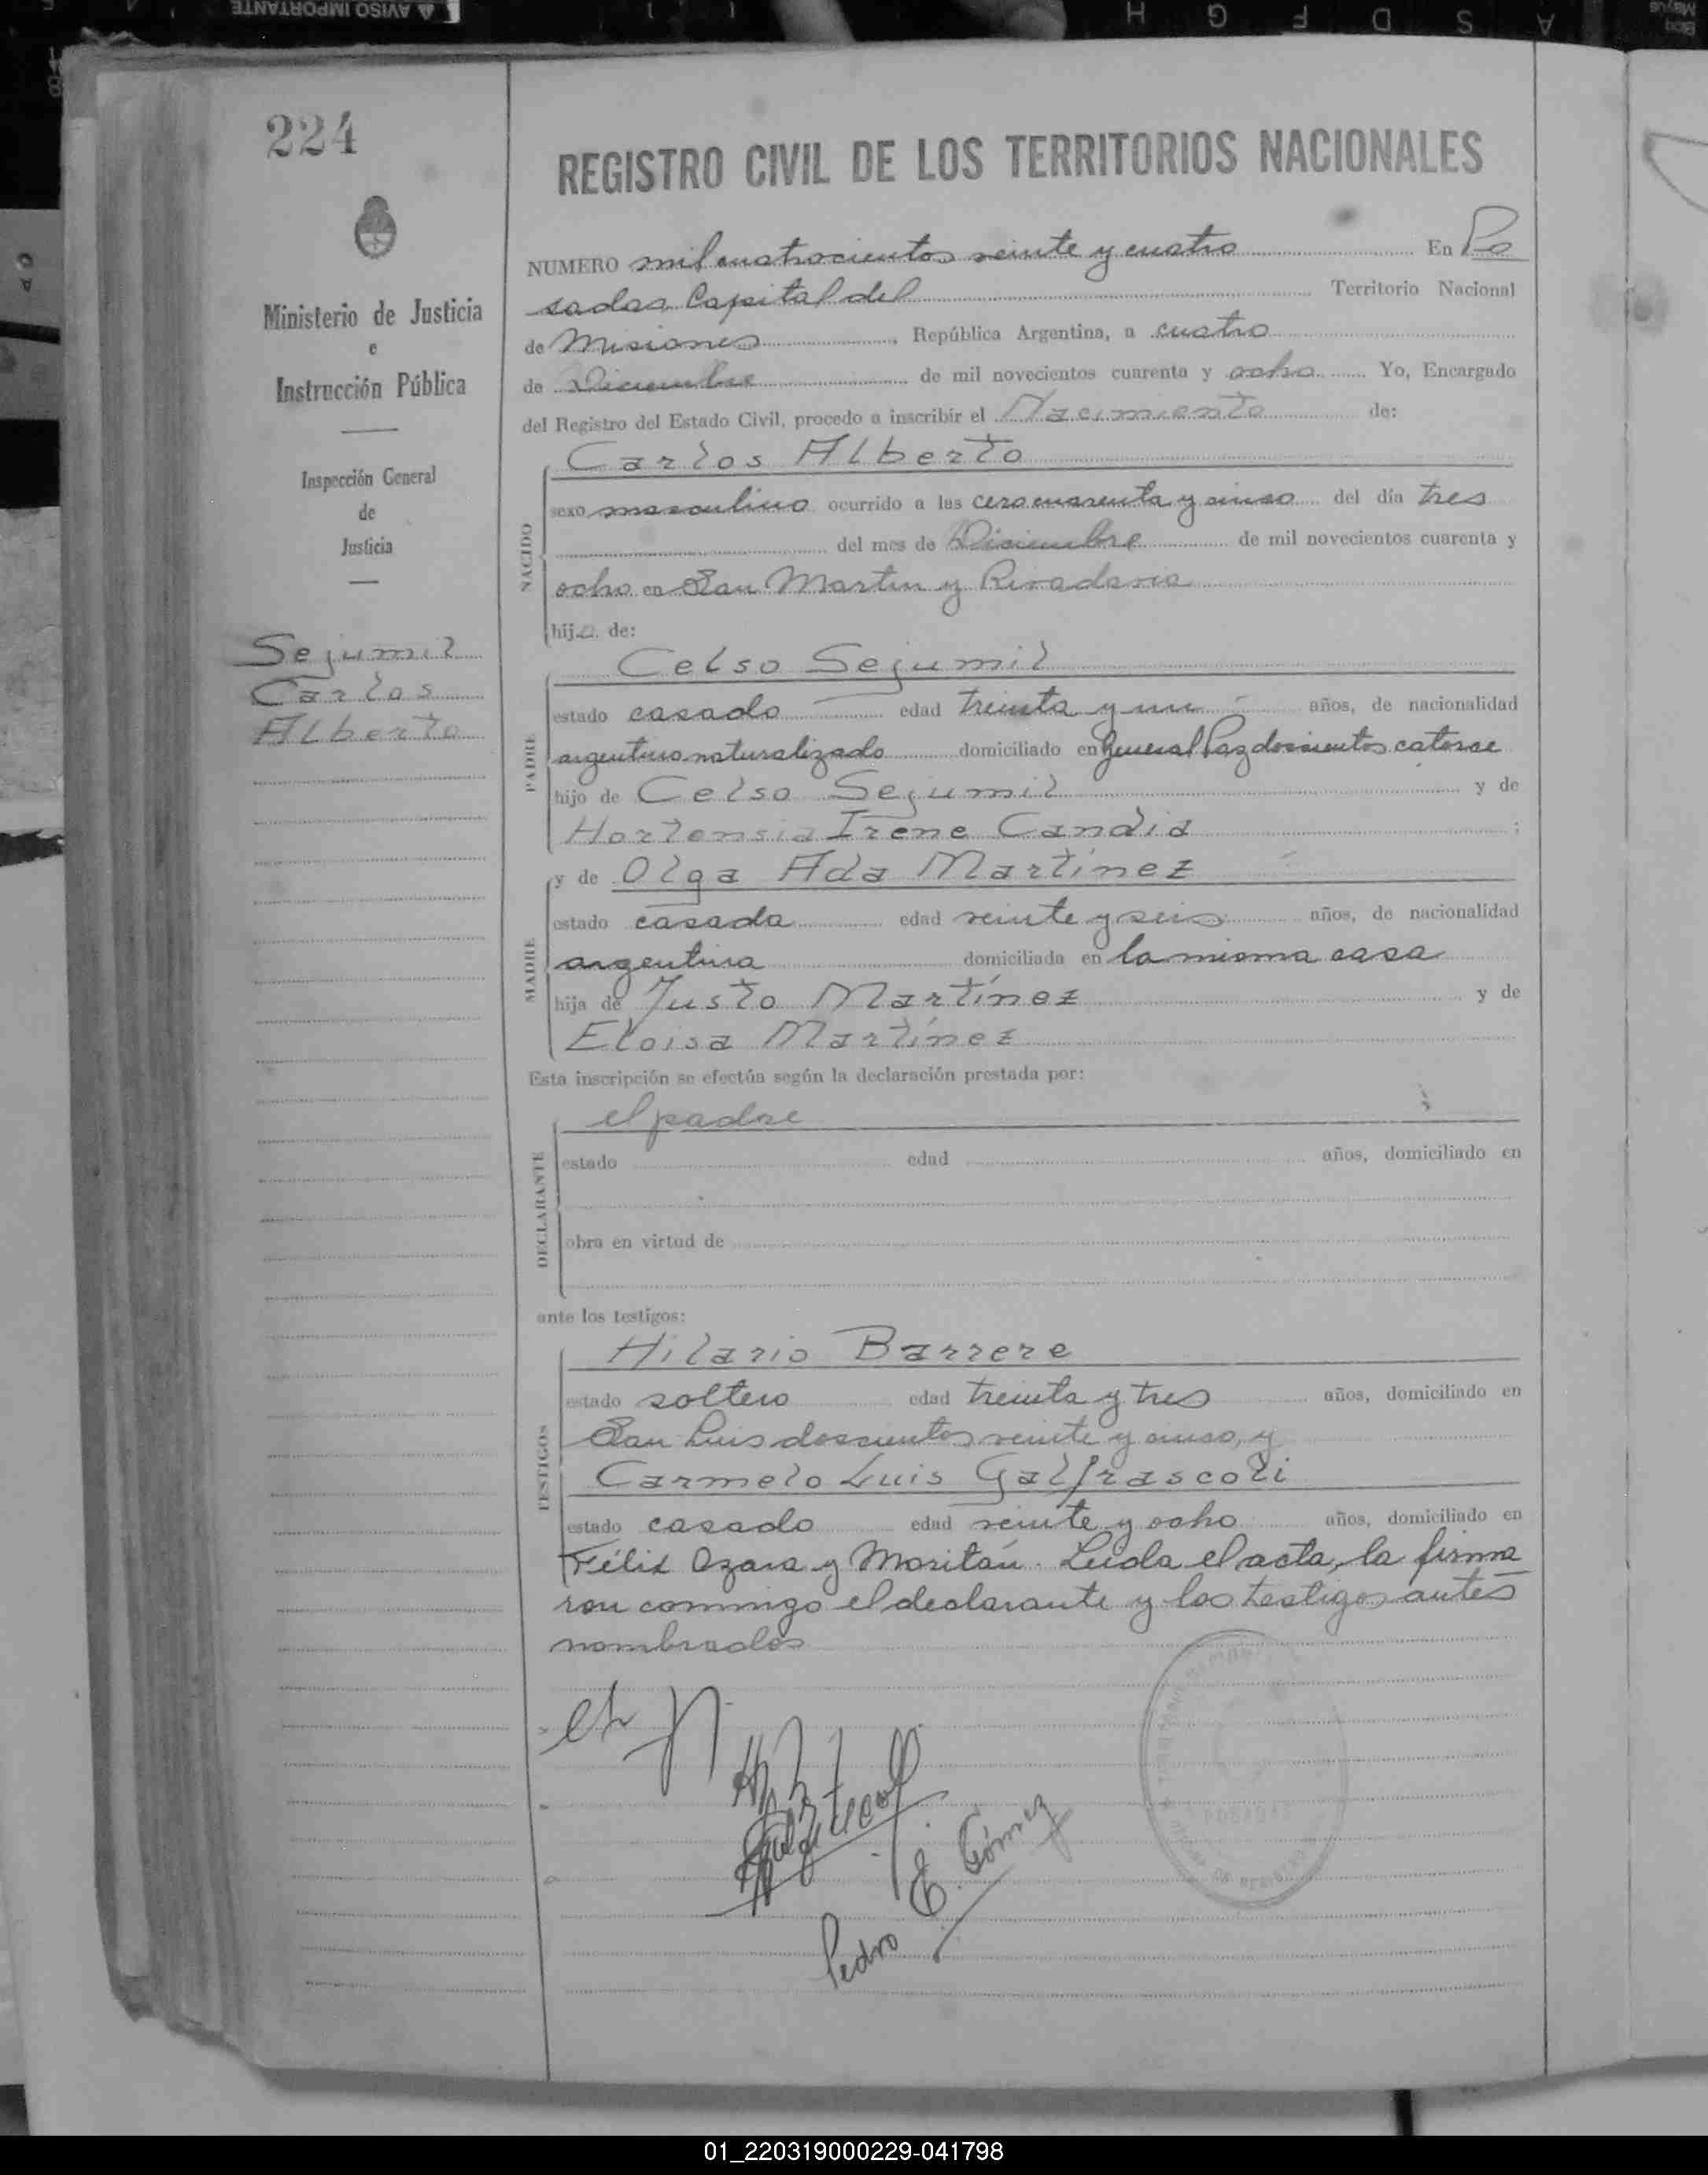 AVISO IMPORTANTE
H G F D S A
224
Ministerio de Justicia
e
Instrucción Pública
Inspección General
de
Justicia
Sejumil
Carlos
Alberto
REGISTRO CIVIL DE LOS TERRITORIOS NACIONALES
NUMERO mil cuatrocientos veinte y cuatro En Po
sadas Capital del Territorio Nacional
de Misiones, República Argentina, a cuatro
de Diciembre de mil novecientos cuarenta y ocho Yo, Encargado
del Registro del Estado Civil, procedo a inscribir el Nacimiento de:
Carlos Alberto
NACIDO
sexo masculino ocurrido a las cero cuarenta y cinco del día tres
del mes de Diciembre de mil novecientos cuarenta y
ocho en San Martin y Rivadavia
hijo de:
Celso Sejumil
PADRE
estado casado edad treinta y un años, de nacionalidad
argentino naturalizado domiciliado en General Paz doscientos catorce
hijo de Celso Sejumil y de
Hortensia Irene Candia ;
y de Olga Ada Martínez
MADRE
estado casada edad veinte y seis años, de nacionalidad
argentina domiciliada en la misma casa
hija de Justo Martínez y de
Eloisa Martínez
Esta inscripción se efectúa según la declaración prestada por:
el padre
DECLARANTE
estado edad años, domiciliado en
obra en virtud de
ante los testigos:
Hilario Barrere
TESTIGOS
estado soltero edad treinta y tres años, domiciliado en
San Luis doscientos veinte y cinco, y
Carmelo Luis Galfrascoli
estado casado edad veinte y ocho años, domiciliado en
Félix Azara y Moritán. Leída el acta, la firma
ron conmigo el declarante y los testigos antes
nombrados
Pedro E. Gómez
POSADAS
01_220319000229-041798